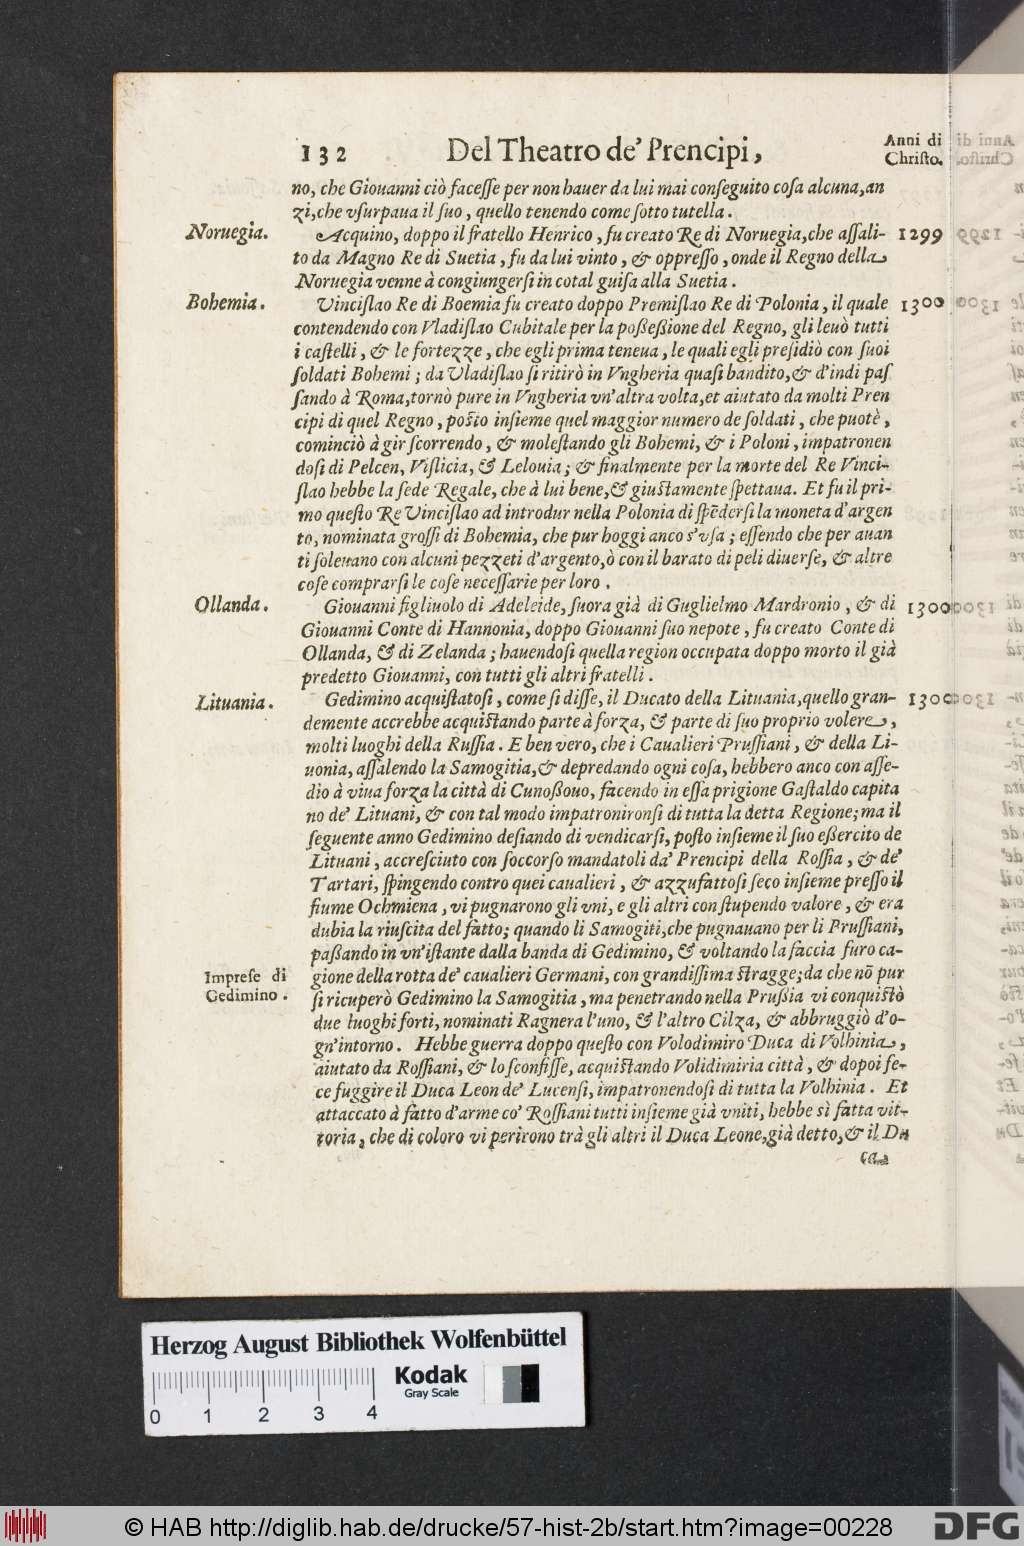 132 Del Theatro de' Prencipi, Anni di
Christo.
no, che Giouanni ciò facesse per non hauer da lui mai conseguito cosa alcuna, an
zi, che vsurpaua il suo, quello tenendo come sotto tutella.
Noruegia. Acquino, doppo il fratello Henrico, fu creato Re di Noruegia, che assali- 1299
to da Magno Re di Suetia, fu da lui vinto, & oppresso, onde il Regno della
Noruegia venne à congiungersi in cotal guisa alla Suetia.
Bohemia. Vincislao Re di Boemia fu creato doppo Premislao Re di Polonia, il quale 1300
contendendo con Vladislao Cubitale per la poßeßione del Regno, gli leuò tutti
i castelli, & le fortezze, che egli prima teneua, le quali egli presidiò con suoi
soldati Bohemi; da Vladislao si ritirò in Vngheria quasi bandito, & d'indi pas
sando à Roma, tornò pure in Vngheria vn'altra volta, et aiutato da molti Pren
cipi di quel Regno, posto insieme quel maggior numero de soldati, che puotè,
cominciò à gir scorrendo, & molestando gli Bohemi, & i Poloni, impatronen
dosi di Pelcen, Vislicia, & Lelouia; & finalmente per la morte del Re Vinci-
slao hebbe la sede Regale, che à lui bene, & giustamente spettaua. Et fu il pri-
mo questo Re Vincislao ad introdur nella Polonia di spẽdersi la moneta d'argen
to, nominata grossi di Bohemia, che pur hoggi anco s'vsa; essendo che per auan
ti soleuano con alcuni pezzeti d'argento, ò con il barato di peli diuerse, & altre
cose comprarsi le cose necessarie per loro.
Ollanda. Giouanni figliuolo di Adeleide, suora già di Guglielmo Mardronio, & di 1300
Giouanni Conte di Hannonia, doppo Giouanni suo nepote, fu creato Conte di
Ollanda, & di Zelanda; hauendosi quella region occupata doppo morto il già
predetto Giouanni, con tutti gli altri fratelli.
Lituania. Gedimino acquistatosi, come si disse, il Ducato della Lituania, quello gran- 1300
demente accrebbe acquistando parte à forza, & parte di suo proprio volere,
molti luoghi della Russia. E ben vero, che i Caualieri Prussiani, & della Li-
uonia, assalendo la Samogitia, & depredando ogni cosa, hebbero anco con asse-
dio à viua forza la città di Cunoßouo, facendo in essa prigione Gastaldo capita
no de' Lituani, & con tal modo impatronironsi di tutta la detta Regione; ma il
seguente anno Gedimino desiando di vendicarsi, posto insieme il suo eßercito de
Lituani, accresciuto con soccorso mandatoli da' Prencipi della Rossia, & de'
Tartari, spingendo contro quei caualieri, & azzuffatosi seco insieme presso il
fiume Ochmiena, vi pugnarono gli vni, e gli altri con stupendo valore, & era
dubia la riuscita del fatto; quando li Samogiti, che pugnauano per li Prussiani,
paßando in vn'istante dalla banda di Gedimino, & voltando la faccia furo ca-
Imprese di gione della rotta de' caualieri Germani, con grandissima stragge; da che nõ pur
Gedimino. si ricuperò Gedimino la Samogitia, ma penetrando nella Prußia vi conquistò
due luoghi forti, nominati Ragnera l'uno, & l'altro Cilza, & abbruggiò d'o-
gn'intorno. Hebbe guerra doppo questo con Volodimiro Duca di Volhinia,
aiutato da Rossiani, & lo sconfisse, acquistando Volidimiria città, & dopoi fe-
ce fuggire il Duca Leon de' Lucensi, impatronendosi di tutta la Volhinia. Et
attaccato à fatto d'arme co' Rossiani tutti insieme già vniti, hebbe sì fatta vit-
toria, che di coloro vi perirono trà gli altri il Duca Leone, già detto, & il Du
ca
Herzog August Bibliothek Wolfenbüttel
Kodak
Gray Scale
0 1 2 3 4
© HAB http://diglib.hab.de/drucke/57-hist-2b/start.htm?image=00228
DFG